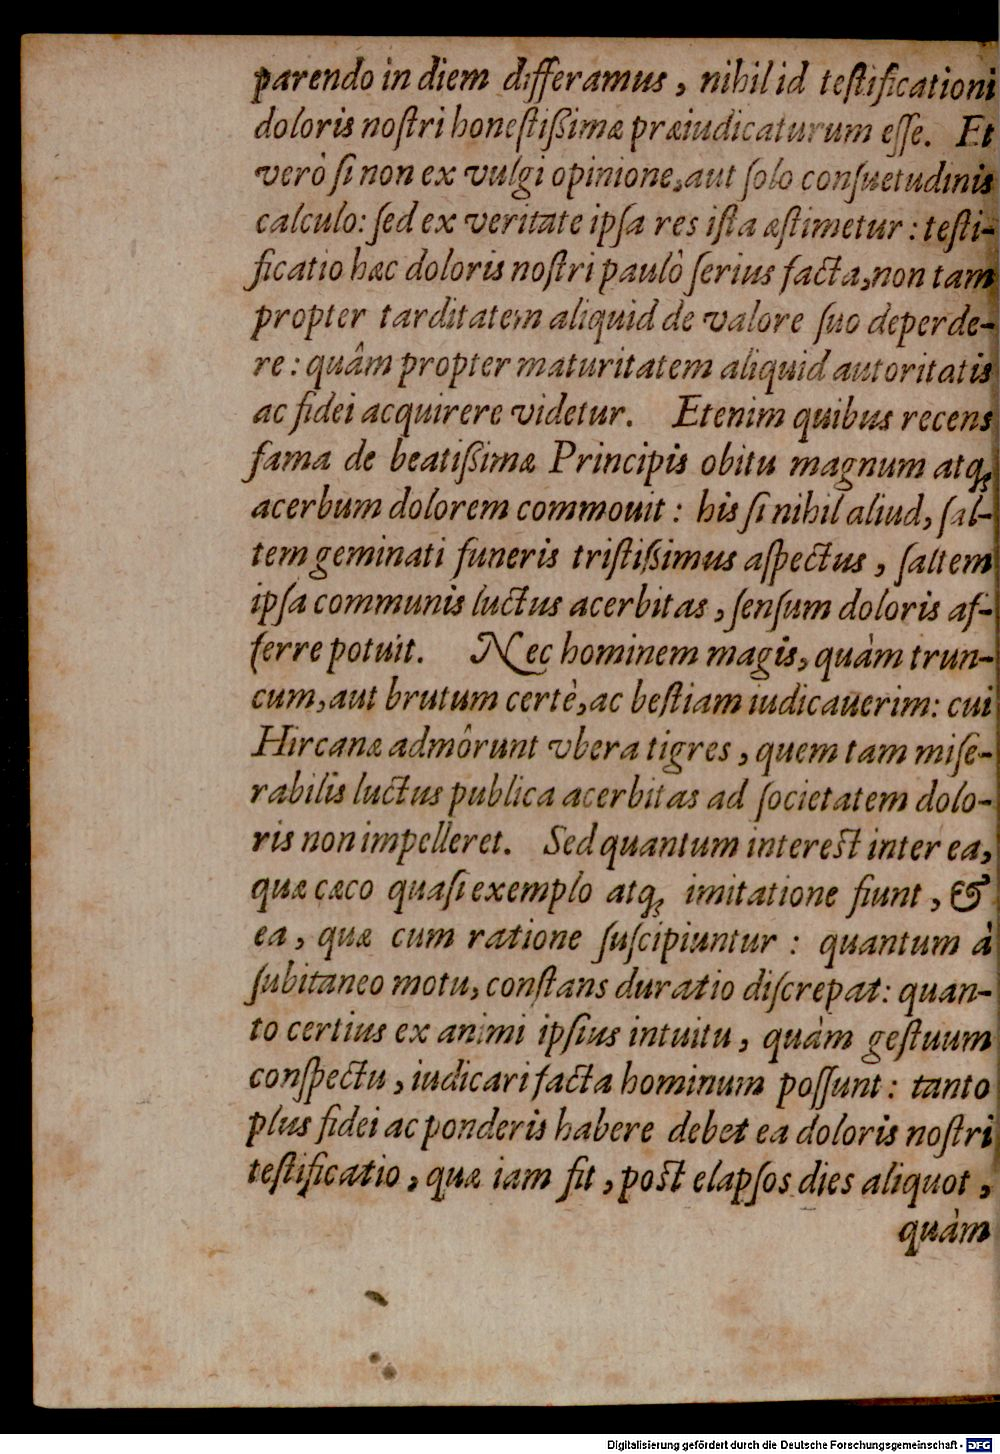 parendo in diem differamus, nihil id teſtificationi
doloris noſtri honeſtiſsimæ præiudicaturum eſſe. Et
verò ſi non ex vulgi opinione, aut ſolo conſuetudinis
calculo: ſed ex veritate ipſa res iſta æſtimetur: teſti-
ficatio hæc doloris noſtri paulò ſerius facta, non tam
propter tarditatem aliquid de valore ſuo deperde-
re: quâm propter maturitatem aliquid autoritatis
ac fidei acquirere videtur. Etenim quibus recens
fama de beatiſsimæ Principis obitu magnum atq;
acerbum dolorem commouit: his ſi nihil aliud, ſal-
tem geminati funeris triſtiſsimus aſpectus, ſaltem
ipſa communis luctus acerbitas, ſenſum doloris af-
ferre potuit. Nec hominem magis, quàm trun-
cum, aut brutum certè, ac beſtiam iudicauerim: cui
Hircanæ admôrunt vbera tigres, quem tam miſe-
rabilis luctus publica acerbitas ad ſocietatem dolo-
ris non impelleret. Sed quantum intereſt inter ea,
quæ cæco quaſi exemplo atq; imitatione fiunt, &
ea, quæ cum ratione ſuſcipiuntur: quantum à
ſubitaneo motu, conſtans duratio diſcrepat: quan-
to certius ex animi ipſius intuitu, quàm geſtuum
conſpectu, iudicari facta hominum poſſunt: tanto
plus fidei ac ponderis habere debet ea doloris noſtri
teſtificatio, quæ iam fit, poſt elapſos dies aliquot,
quàm
Digitalisierung gefördert durch die Deutsche Forschungsgemeinschaft - DFG